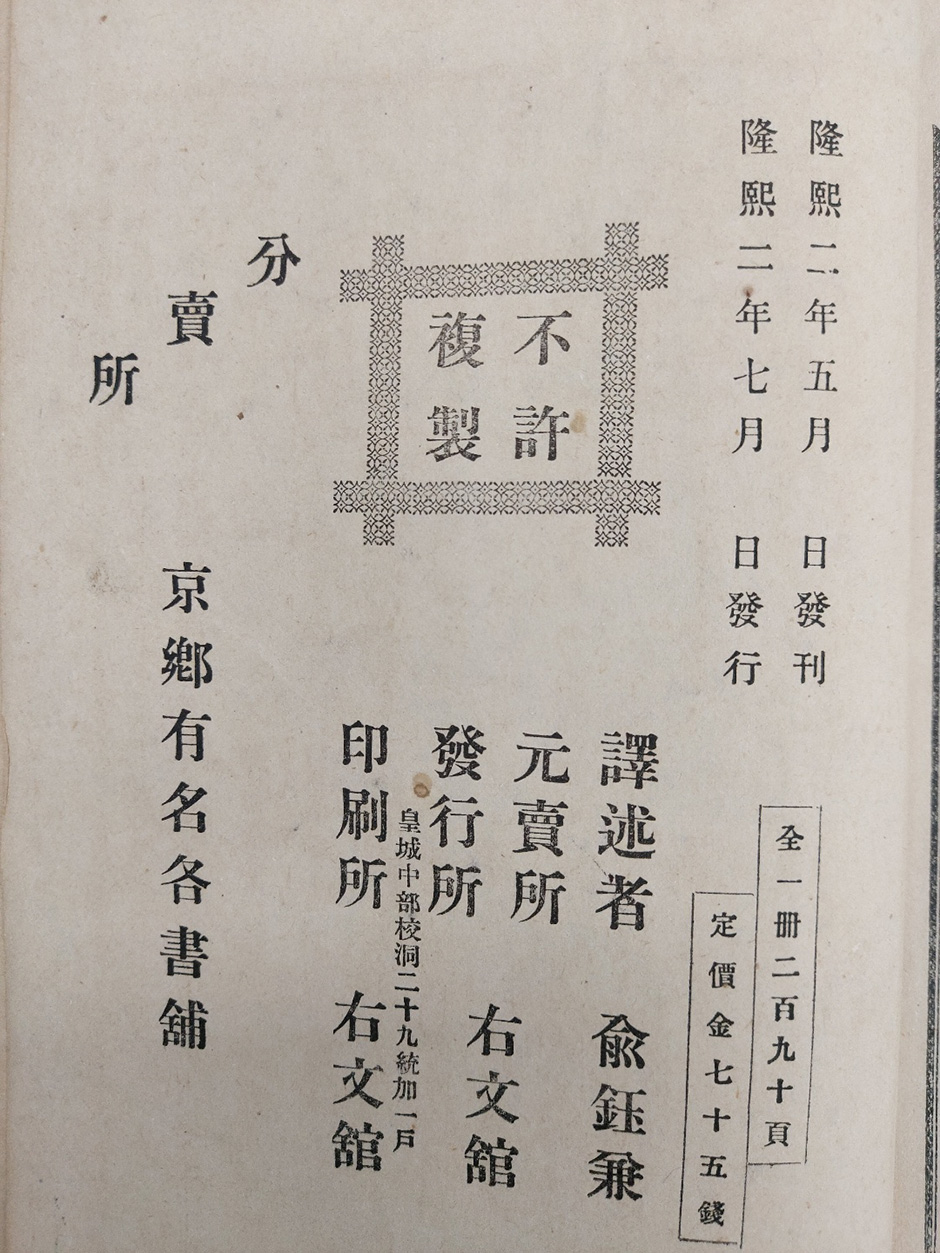 隆熙二年五月 日發刊
隆熙二年七月 日發行
全一冊二百九十頁
定價金七十五錢
不許
複製
譯述者 兪鈺兼
元賣所
發行所 右文舘
皇城中部校洞二十九統加一戶
印刷所 右文舘
分賣所 京鄕有名各書舖